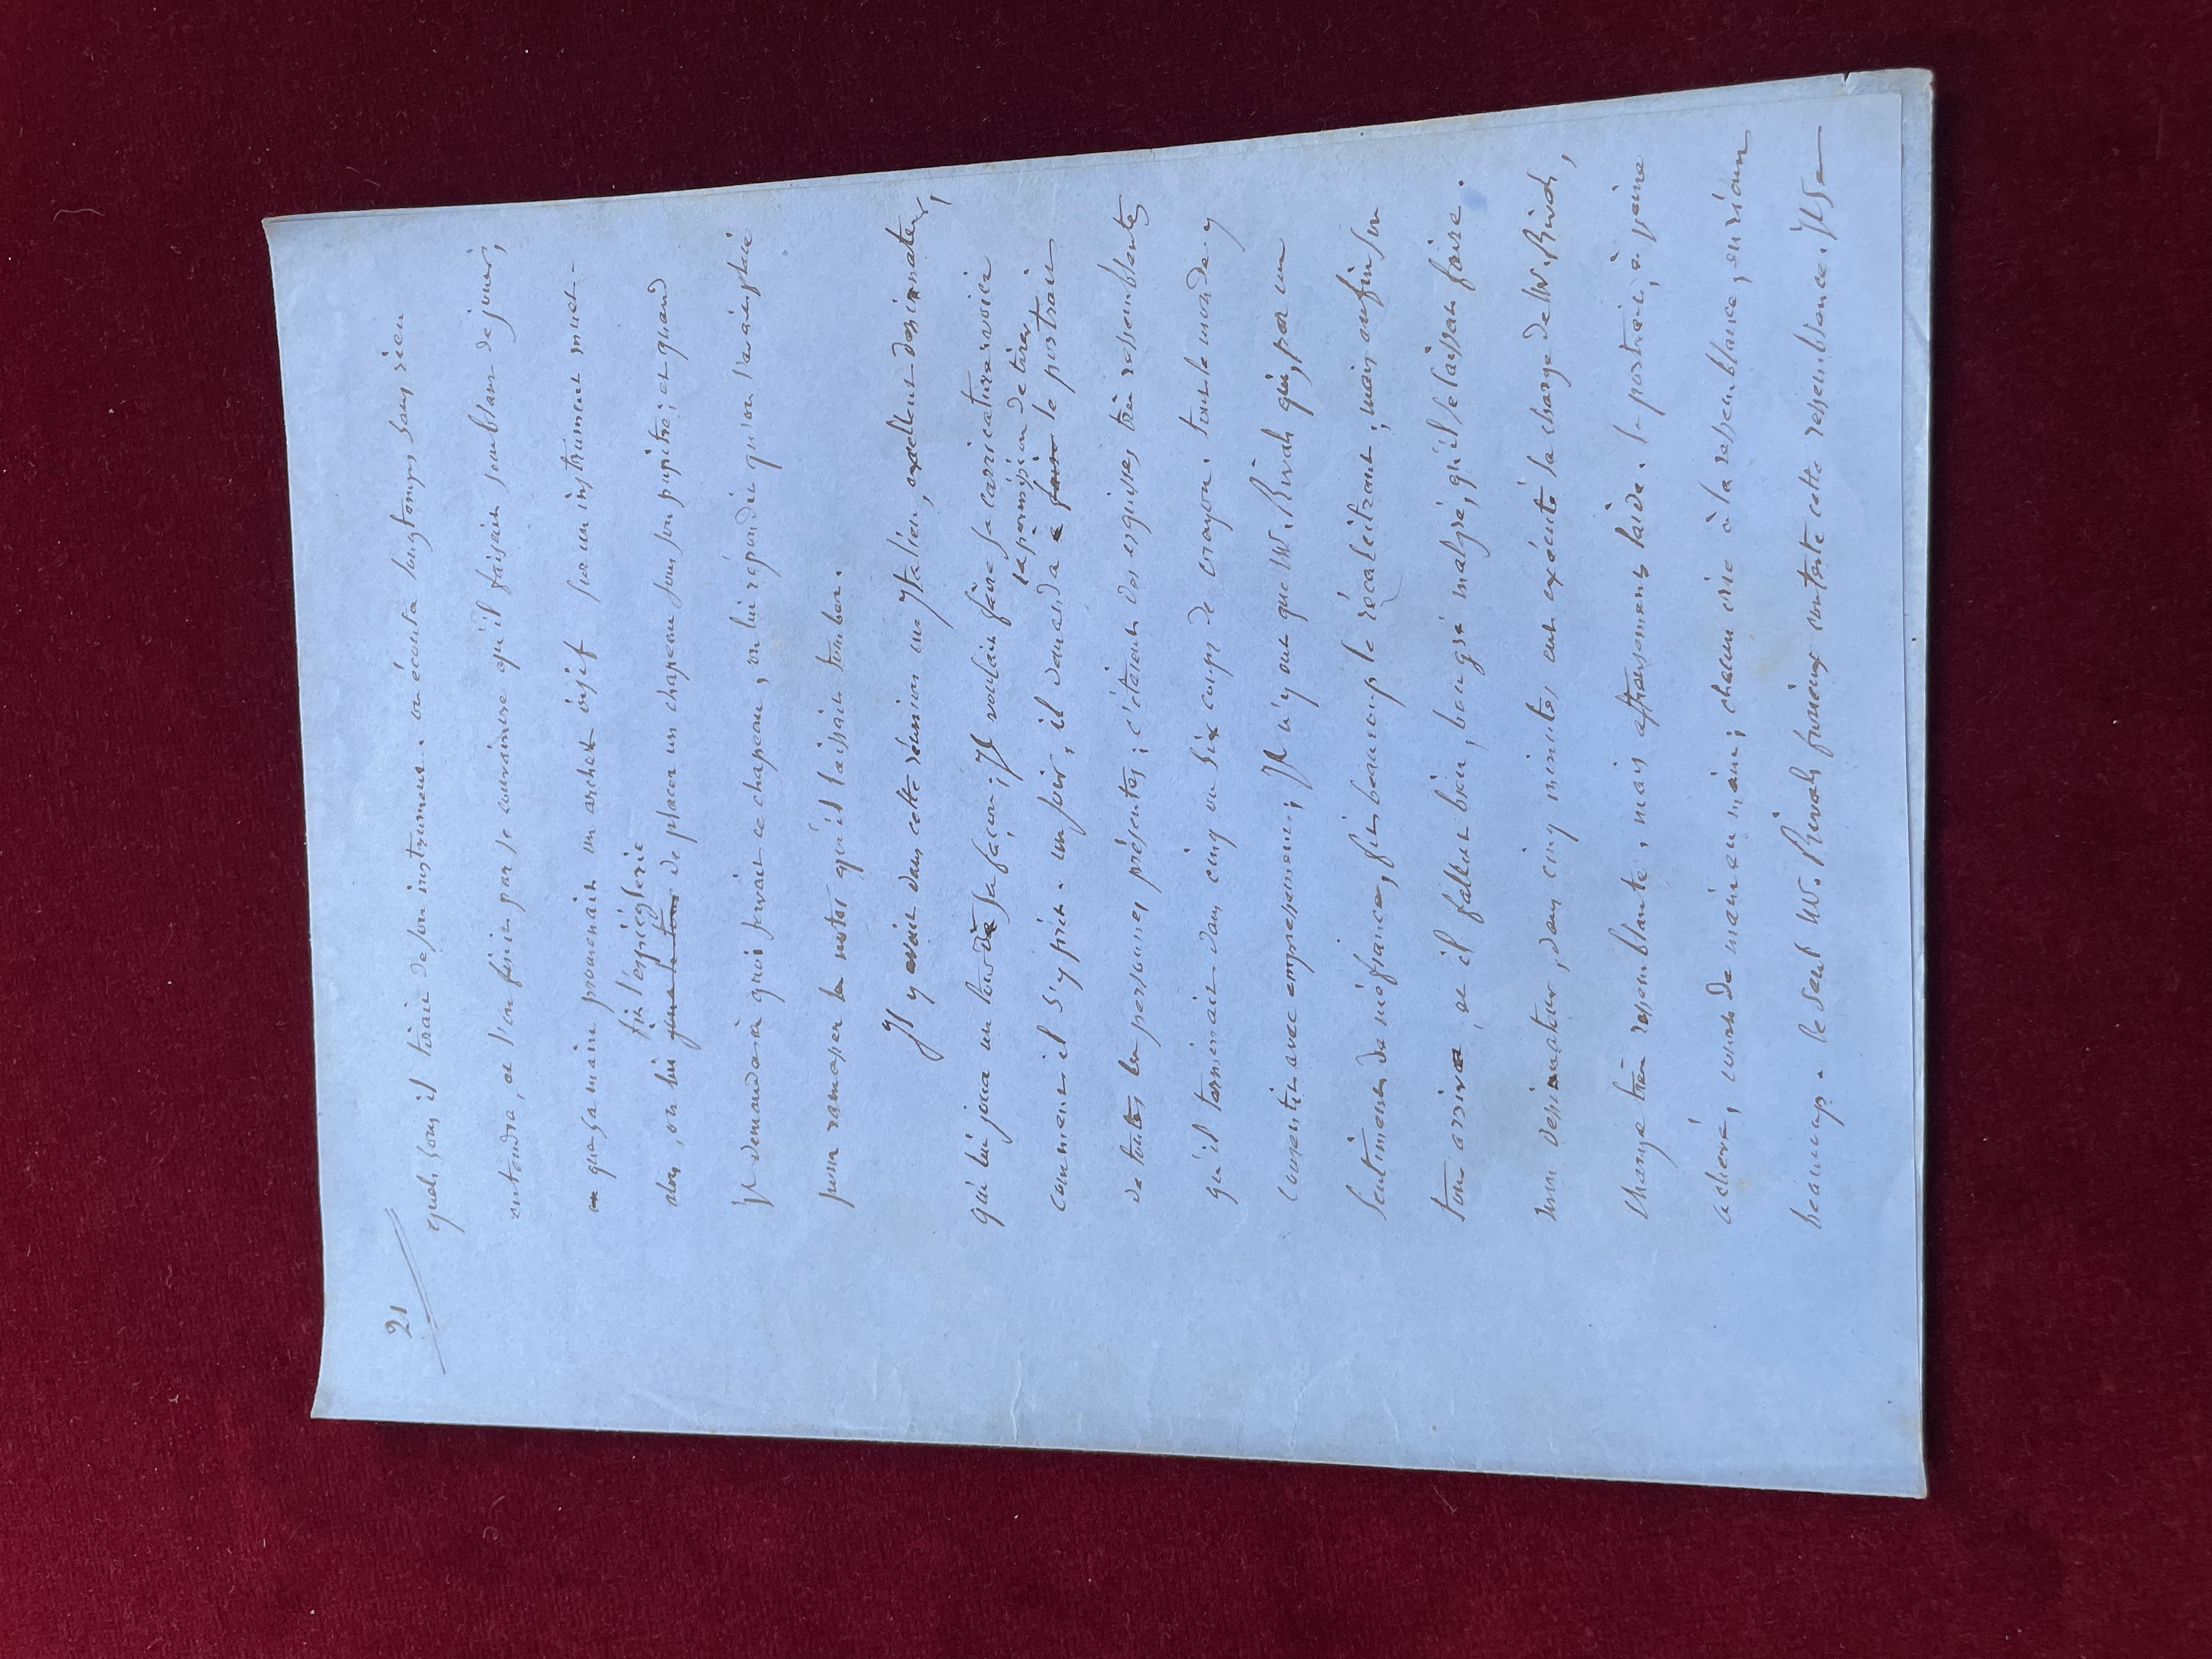 21
quels sons il tirait de son instrument. on écouta longtemps sans rien
entendre, et l'on finit par se convaincre qu'il faisait semblant de jouer,
et que sa main promenait un archet oisif sur un instrument muet.
fit l'espièglerie
alors, on lui joua le tour de placer un chapeau sous son pupitre; et quand
il demandait à quoi servait ce chapeau, on lui répondit qu'on l'avait placé
pour ramasser les notes qu'il laissait tomber.
Il y avait dans cette réunion un Italien, excellent dessinateur,
qui lui joua un tour de sa façon; Il voulait faire sa carricature: voici
la permission de tirer
comment il s'y prit. un soir, il demanda à faire le portrait
de toutes les personnes présentes; c'étaient des esquisses très ressemblantes
qu'il terminait dans cinq ou six coups de crayon. tout le monde y
consentit avec empressement; Il n'y eut que Mr. Rivals qui, par un
sentiment de méfiance, fit beaucoup le récalcitrant; mais enfin son
tour arriva, et il fallut bien, bon gré malgré, qu'il se laissat faire.
mon dessinateur, dans cinq minutes, eut exécuté la charge de Mr. Rivals,
charge très ressemblante, mais affreusement laide. le portrait, à peine
achevé, courut de main en main; chacun cria à la ressemblance, en riant
beaucoup. le seul Mr. Rivals furieux contesta cette ressemblance. Il se